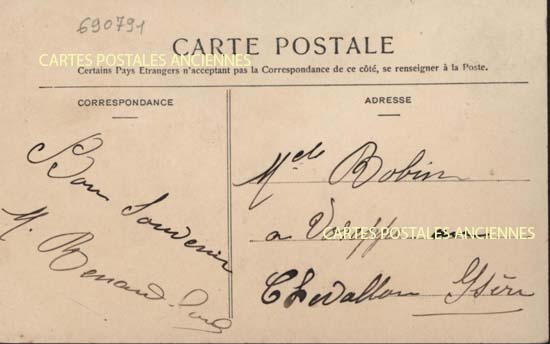 690791
CARTE POSTALE
CARTES POSTALES ANCIENNES
Certains Pays Etrangers n'acceptant pas la Correspondance de ce côté, se renseigner à la Poste.
CORRESPONDANCE
Bon Souvenir
M. Renaud
ADRESSE
Melle Bobin
a
CARTES POSTALES ANCIENNES
Chevallon Isère